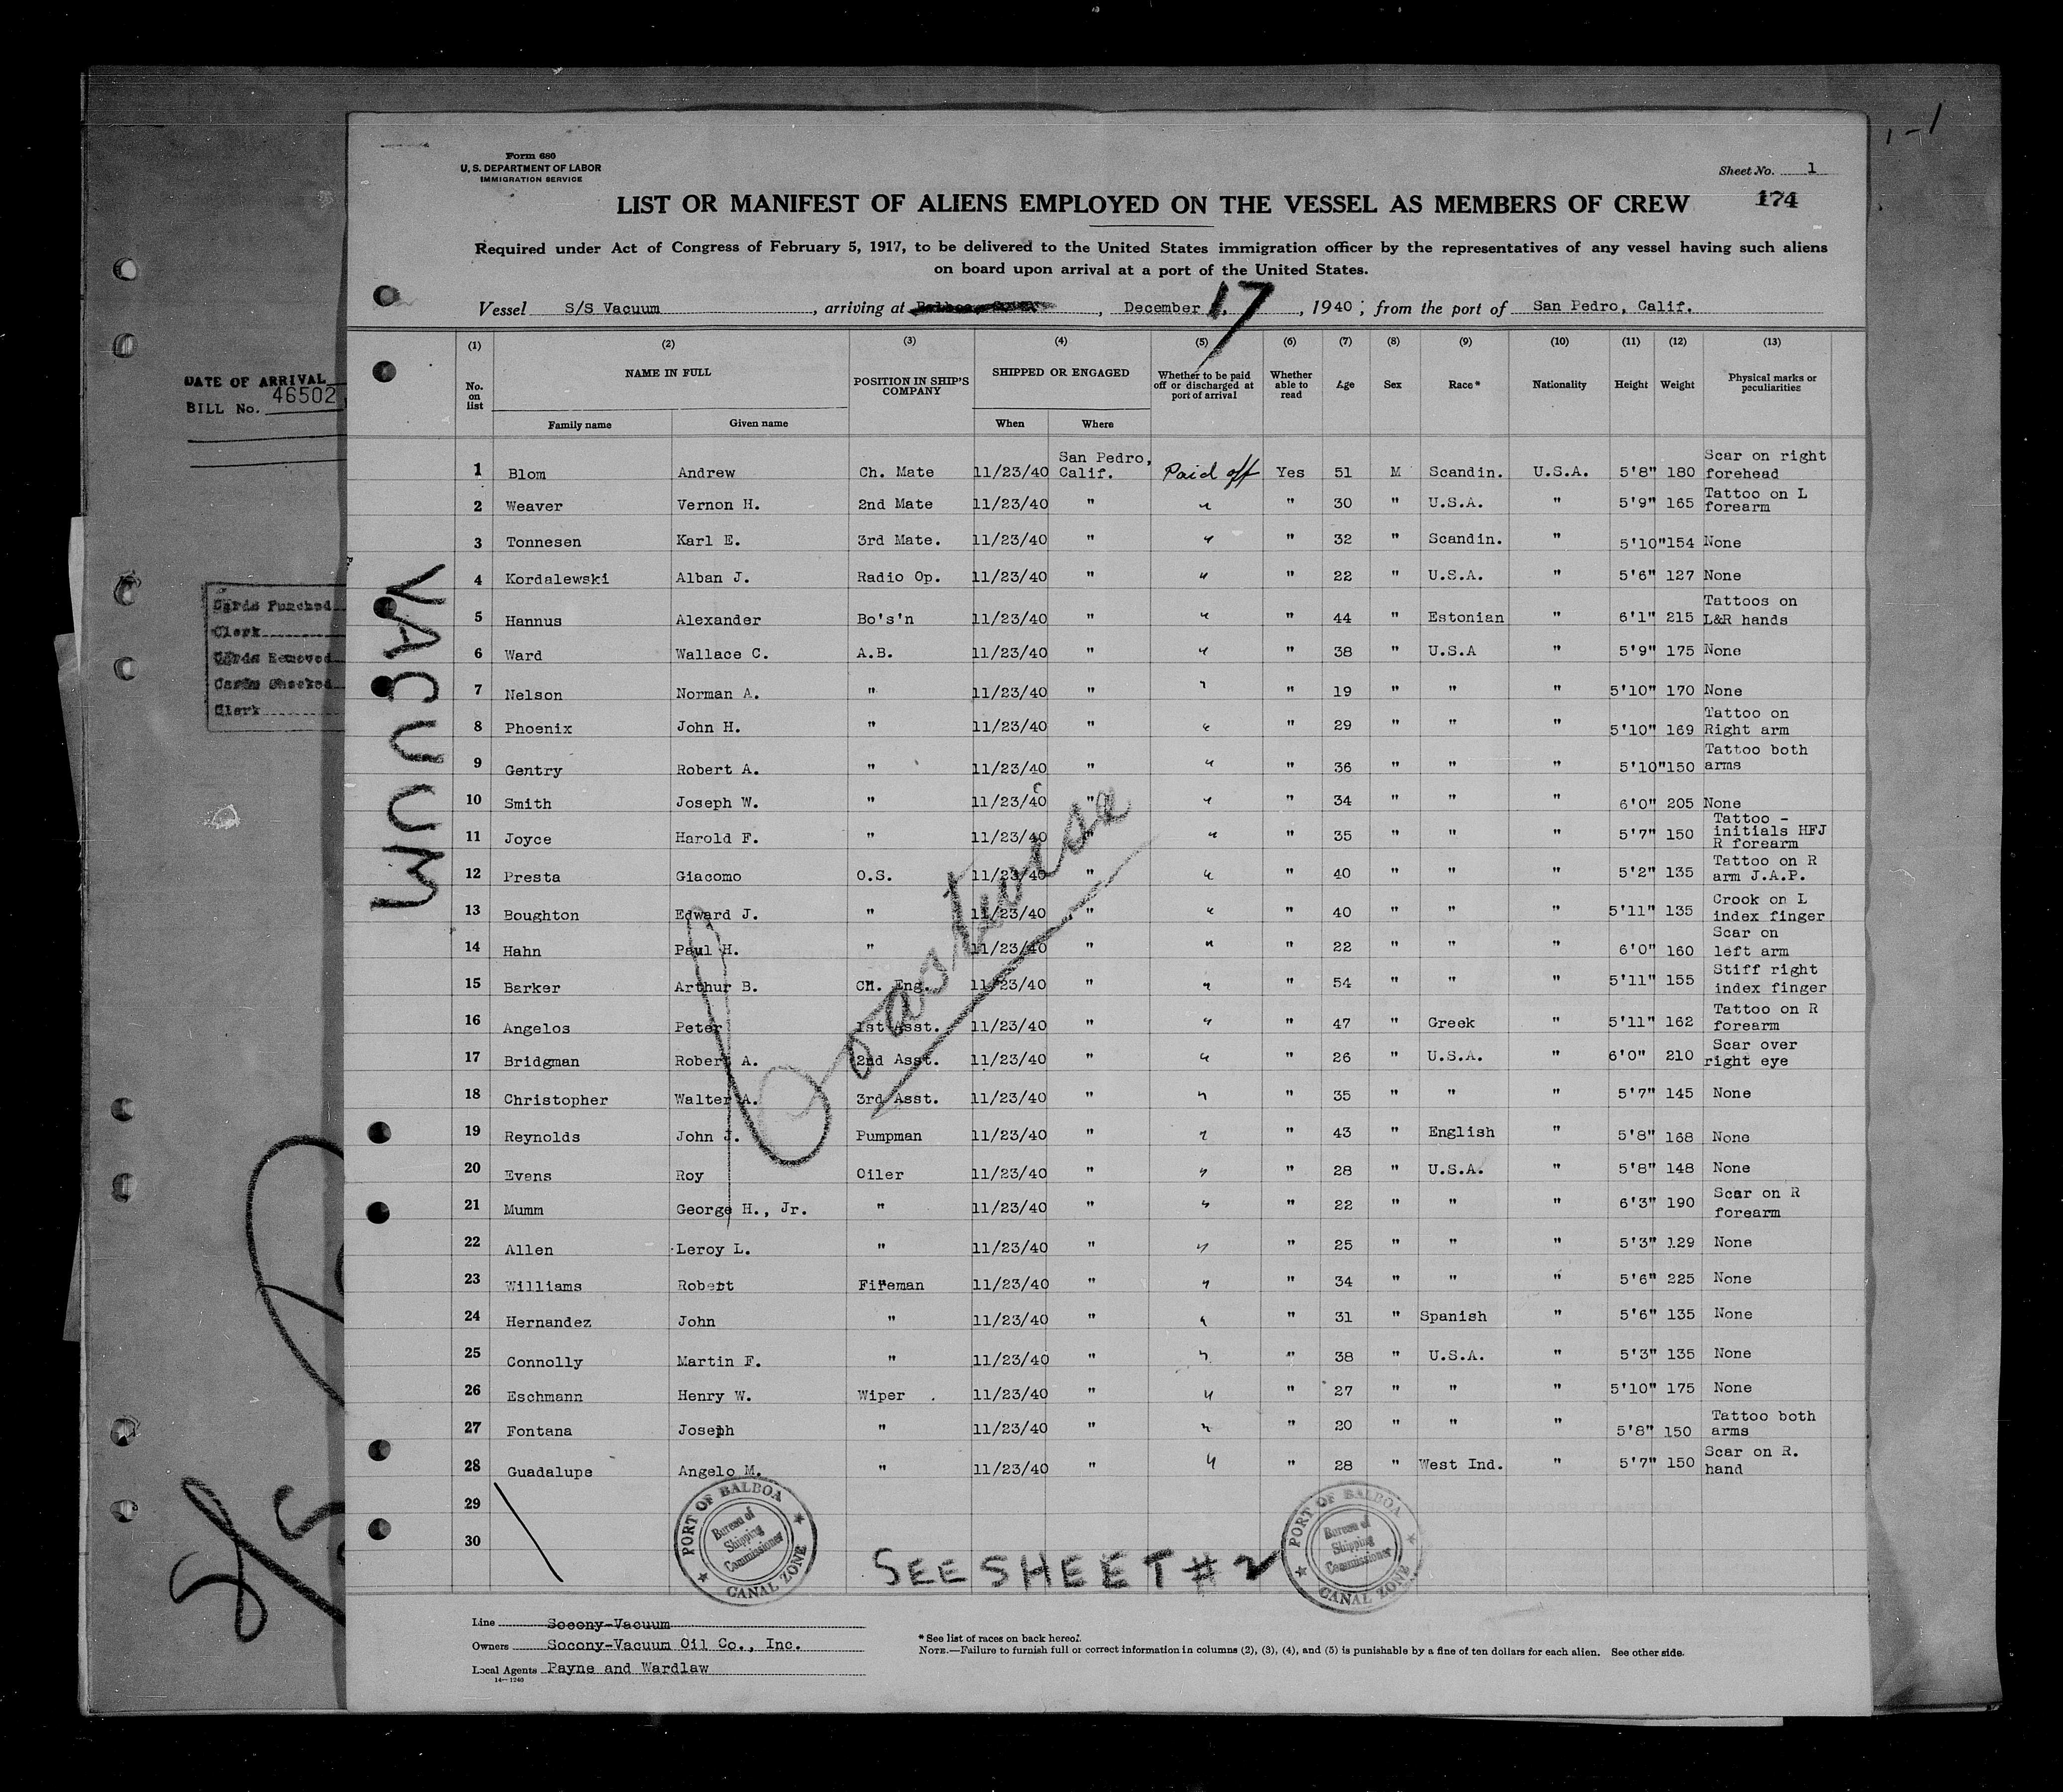 1-1
Form 680
U. S. DEPARTMENT OF LABOR
IMMIGRATION SERVICE
Sheet No. 1
174
LIST OR MANIFEST OF ALIENS EMPLOYED ON THE VESSEL AS MEMBERS OF CREW
Required under Act of Congress of February 5, 1917, to be delivered to the United States immigration officer by the representatives of any vessel having such aliens
on board upon arrival at a port of the United States.
Vessel S/S Vacuum, arriving at , December 17, 1940; from the port of San Pedro, Calif.
DATE OF ARRIVAL
BILL No. 46502
Cards Punched
Clerk
Cards Removed
Cards Checked
Clerk
VACUUM
(1) (2) (3) (4) (5) (6) (7) (8) (9) (10) (11) (12) (13)
No. on list NAME IN FULL POSITION IN SHIP'S COMPANY SHIPPED OR ENGAGED Whether to be paid off or discharged at port of arrival Whether able to read Age Sex Race* Nationality Height Weight Physical marks or peculiarities
Family name Given name When Where
1 Blom Andrew Ch. Mate 11/23/40 San Pedro, Calif. Paid off Yes 51 M Scandin. U.S.A. 5'8" 180 Scar on right forehead
2 Weaver Vernon H. 2nd Mate 11/23/40 " " " 30 " U.S.A. " 5'9" 165 Tattoo on L forearm
3 Tonnesen Karl E. 3rd Mate. 11/23/40 " " " 32 " Scandin. " 5'10" 154 None
4 Kordalewski Alban J. Radio Op. 11/23/40 " " " 22 " U.S.A. " 5'6" 127 None
5 Hannus Alexander Bo's'n 11/23/40 " " " 44 " Estonian " 6'1" 215 Tattoos on L&R hands
6 Ward Wallace C. A.B. 11/23/40 " " " 38 " U.S.A " 5'9" 175 None
7 Nelson Norman A. " 11/23/40 " " " 19 " " " 5'10" 170 None
8 Phoenix John H. " 11/23/40 " " " 29 " " " 5'10" 169 Tattoo on Right arm
9 Gentry Robert A. " 11/23/40 " " " 36 " " " 5'10" 150 Tattoo both arms
10 Smith Joseph W. " 11/23/40 " " " 34 " " " 6'0" 205 None
11 Joyce Harold F. " 11/23/40 " " " 35 " " " 5'7" 150 Tattoo - initials HFJ R forearm
12 Presta Giacomo O.S. 11/23/40 " " " 40 " " " 5'2" 135 Tattoo on R arm J.A.P.
13 Boughton Edward J. " 11/23/40 " " " 40 " " " 5'11" 135 Crook on L index finger
14 Hahn Paul H. " 11/23/40 " " " 22 " " " 6'0" 160 Scar on left arm
15 Barker Arthur B. Ch. Eng. 11/23/40 " " " 54 " " " 5'11" 155 Stiff right index finger
16 Angelos Peter 1st Asst. 11/23/40 " " " 47 " Greek " 5'11" 162 Tattoo on R forearm
17 Bridgman Robert A. 2nd Asst. 11/23/40 " " " 26 " U.S.A. " 6'0" 210 Scar over right eye
18 Christopher Walter A. 3rd Asst. 11/23/40 " " " 35 " " " 5'7" 145 None
19 Reynolds John J. Pumpman 11/23/40 " " " 43 " English " 5'8" 168 None
20 Evens Roy Oiler 11/23/40 " " " 28 " U.S.A. " 5'8" 148 None
21 Mumm George H., Jr. " 11/23/40 " " " 22 " " " 6'3" 190 Scar on R forearm
22 Allen Leroy L. " 11/23/40 " " " 25 " " " 5'3" 129 None
23 Williams Robert Fireman 11/23/40 " " " 34 " " " 5'6" 225 None
24 Hernandez John " 11/23/40 " " " 31 " Spanish " 5'6" 135 None
25 Connolly Martin F. " 11/23/40 " " " 38 " U.S.A. " 5'3" 135 None
26 Eschmann Henry W. Wiper 11/23/40 " " " 27 " " " 5'10" 175 None
27 Fontana Joseph " 11/23/40 " " " 20 " " " 5'8" 150 Tattoo both arms
28 Guadalupe Angelo M. " 11/23/40 " " " 28 " West Ind. " 5'7" 150 Scar on R. hand
29
30
Coastwise
PORT OF BALBOA
Bureau of
Shipping
Commissioner
CANAL ZONE
SEE SHEET # 2
PORT OF BALBOA
Bureau of
Shipping
Commissioner
CANAL ZONE
S/S
Line Socony-Vacuum
Owners Socony-Vacuum Oil Co., Inc.
Local Agents Payne and Wardlaw
14—1240
* See list of races on back hereof.
NOTE.—Failure to furnish full or correct information in columns (2), (3), (4), and (5) is punishable by a fine of ten dollars for each alien. See other side.